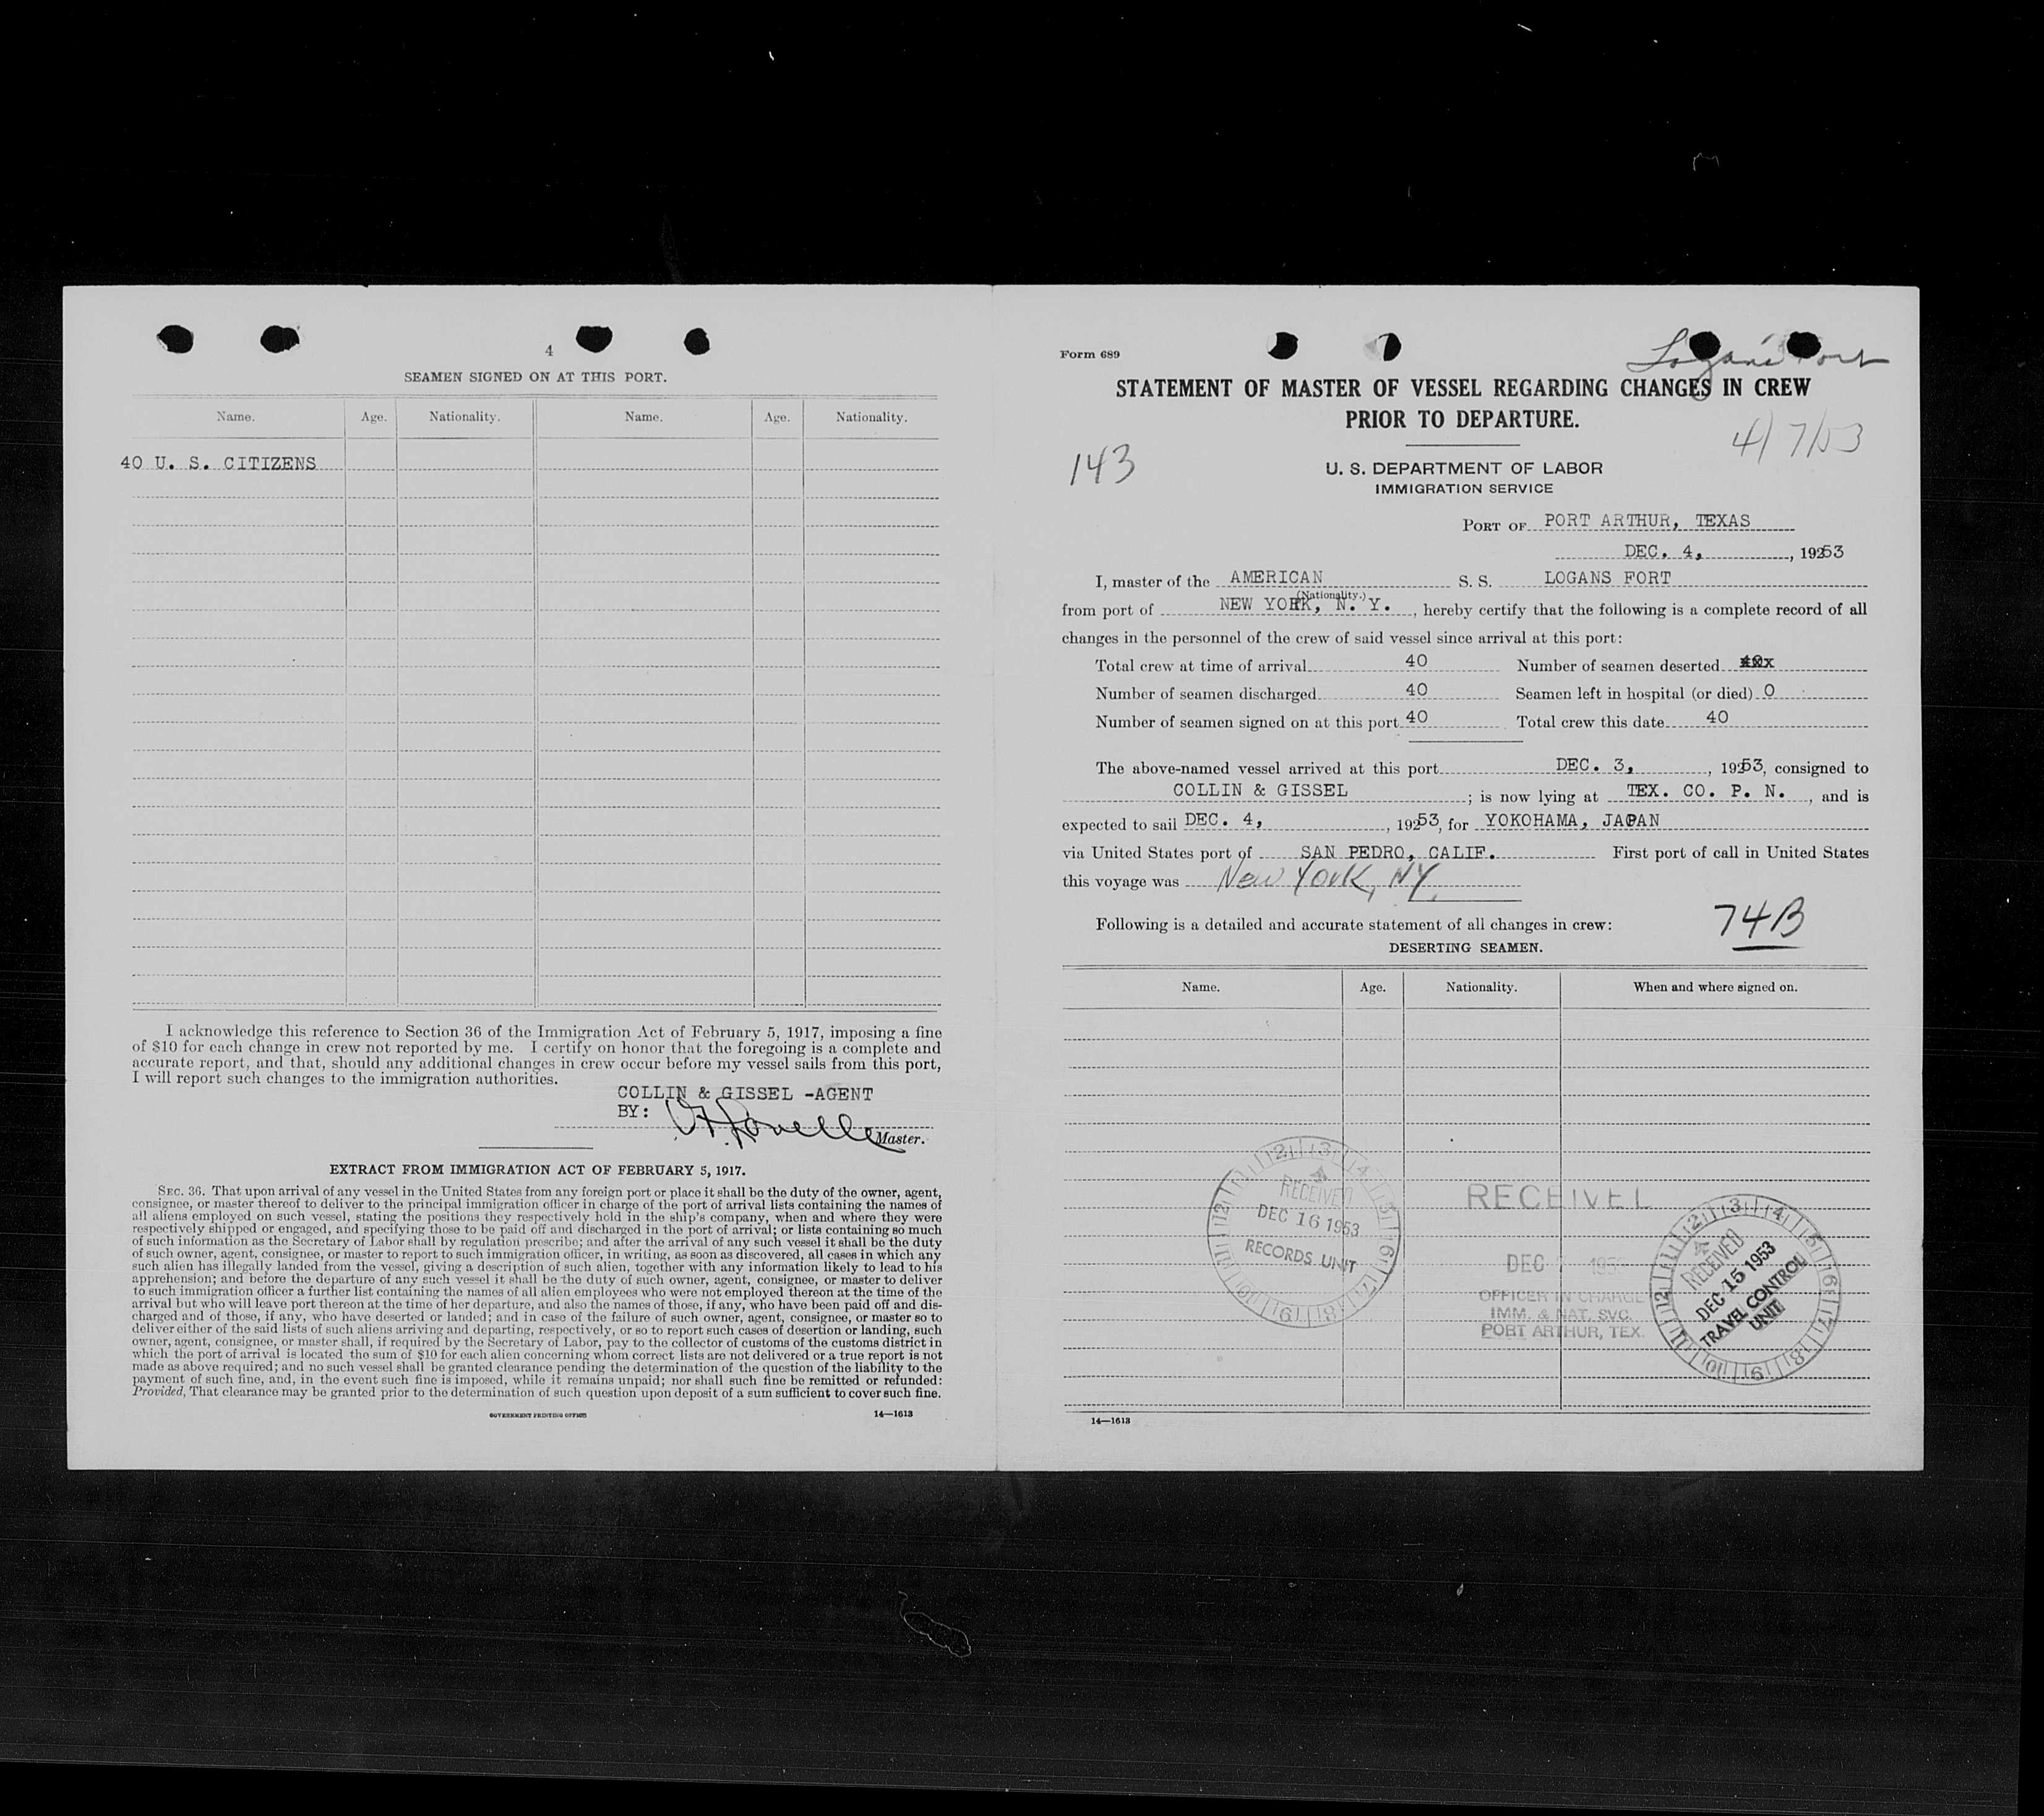 4
SEAMEN SIGNED ON AT THIS PORT.
Name. Age. Nationality. Name. Age. Nationality.
40 U. S. CITIZENS
I acknowledge this reference to Section 36 of the Immigration Act of February 5, 1917, imposing a fine
of $10 for each change in crew not reported by me. I certify on honor that the foregoing is a complete and
accurate report, and that, should any additional changes in crew occur before my vessel sails from this port,
I will report such changes to the immigration authorities.
COLLIN & GISSEL -AGENT
BY:
Master.
EXTRACT FROM IMMIGRATION ACT OF FEBRUARY 5, 1917.
SEC. 36. That upon arrival of any vessel in the United States from any foreign port or place it shall be the duty of the owner, agent,
consignee, or master thereof to deliver to the principal immigration officer in charge of the port of arrival lists containing the names of
all aliens employed on such vessel, stating the positions they respectively hold in the ship's company, when and where they were
respectively shipped or engaged, and specifying those to be paid off and discharged in the port of arrival; or lists containing so much
of such information as the Secretary of Labor shall by regulation prescribe; and after the arrival of any such vessel it shall be the duty
of such owner, agent, consignee, or master to report to such immigration officer, in writing, as soon as discovered, all cases in which any
such alien has illegally landed from the vessel, giving a description of such alien, together with any information likely to lead to his
apprehension; and before the departure of any such vessel it shall be the duty of such owner, agent, consignee, or master to deliver
to such immigration officer a further list containing the names of all alien employees who were not employed thereon at the time of the
arrival but who will leave port thereon at the time of her departure, and also the names of those, if any, who have been paid off and dis-
charged and of those, if any, who have deserted or landed; and in case of the failure of such owner, agent, consignee, or master so to
deliver either of the said lists of such aliens arriving and departing, respectively, or so to report such cases of desertion or landing, such
owner, agent, consignee, or master shall, if required by the Secretary of Labor, pay to the collector of customs of the customs district in
which the port of arrival is located the sum of $10 for each alien concerning whom correct lists are not delivered or a true report is not
made as above required; and no such vessel shall be granted clearance pending the determination of the question of the liability to the
payment of such fine, and, in the event such fine is imposed, while it remains unpaid; nor shall such fine be remitted or refunded:
Provided, That clearance may be granted prior to the determination of such question upon deposit of a sum sufficient to cover such fine.
GOVERNMENT PRINTING OFFICE 14—1613
Form 689
STATEMENT OF MASTER OF VESSEL REGARDING CHANGES IN CREW
PRIOR TO DEPARTURE.
143
U. S. DEPARTMENT OF LABOR
IMMIGRATION SERVICE
PORT OF PORT ARTHUR, TEXAS
DEC. 4, , 19253
I, master of the AMERICAN S. S. LOGANS FORT
(Nationality.)
from port of NEW YORK, N. Y. , hereby certify that the following is a complete record of all
changes in the personnel of the crew of said vessel since arrival at this port:
Total crew at time of arrival 40 Number of seamen deserted
Number of seamen discharged 40 Seamen left in hospital (or died) 0
Number of seamen signed on at this port 40 Total crew this date 40
The above-named vessel arrived at this port DEC. 3, , 19253, consigned to
COLLIN & GISSEL ; is now lying at TEX. CO. P. N. , and is
expected to sail DEC. 4, , 19253, for YOKOHAMA, JAPAN
via United States port of SAN PEDRO, CALIF. First port of call in United States
this voyage was New York, NY.
74B
Following is a detailed and accurate statement of all changes in crew:
DESERTING SEAMEN.
Name. Age. Nationality. When and where signed on.
RECEIVED
DEC 16 1953
RECORDS UNIT
RECEIVED
DEC
OFFICER IN CHARGE
IMM. & NAT. SVC.
PORT ARTHUR, TEX.
RECEIVED
DEC 15 1953
TRAVEL CONTROL
UNIT
14—1613